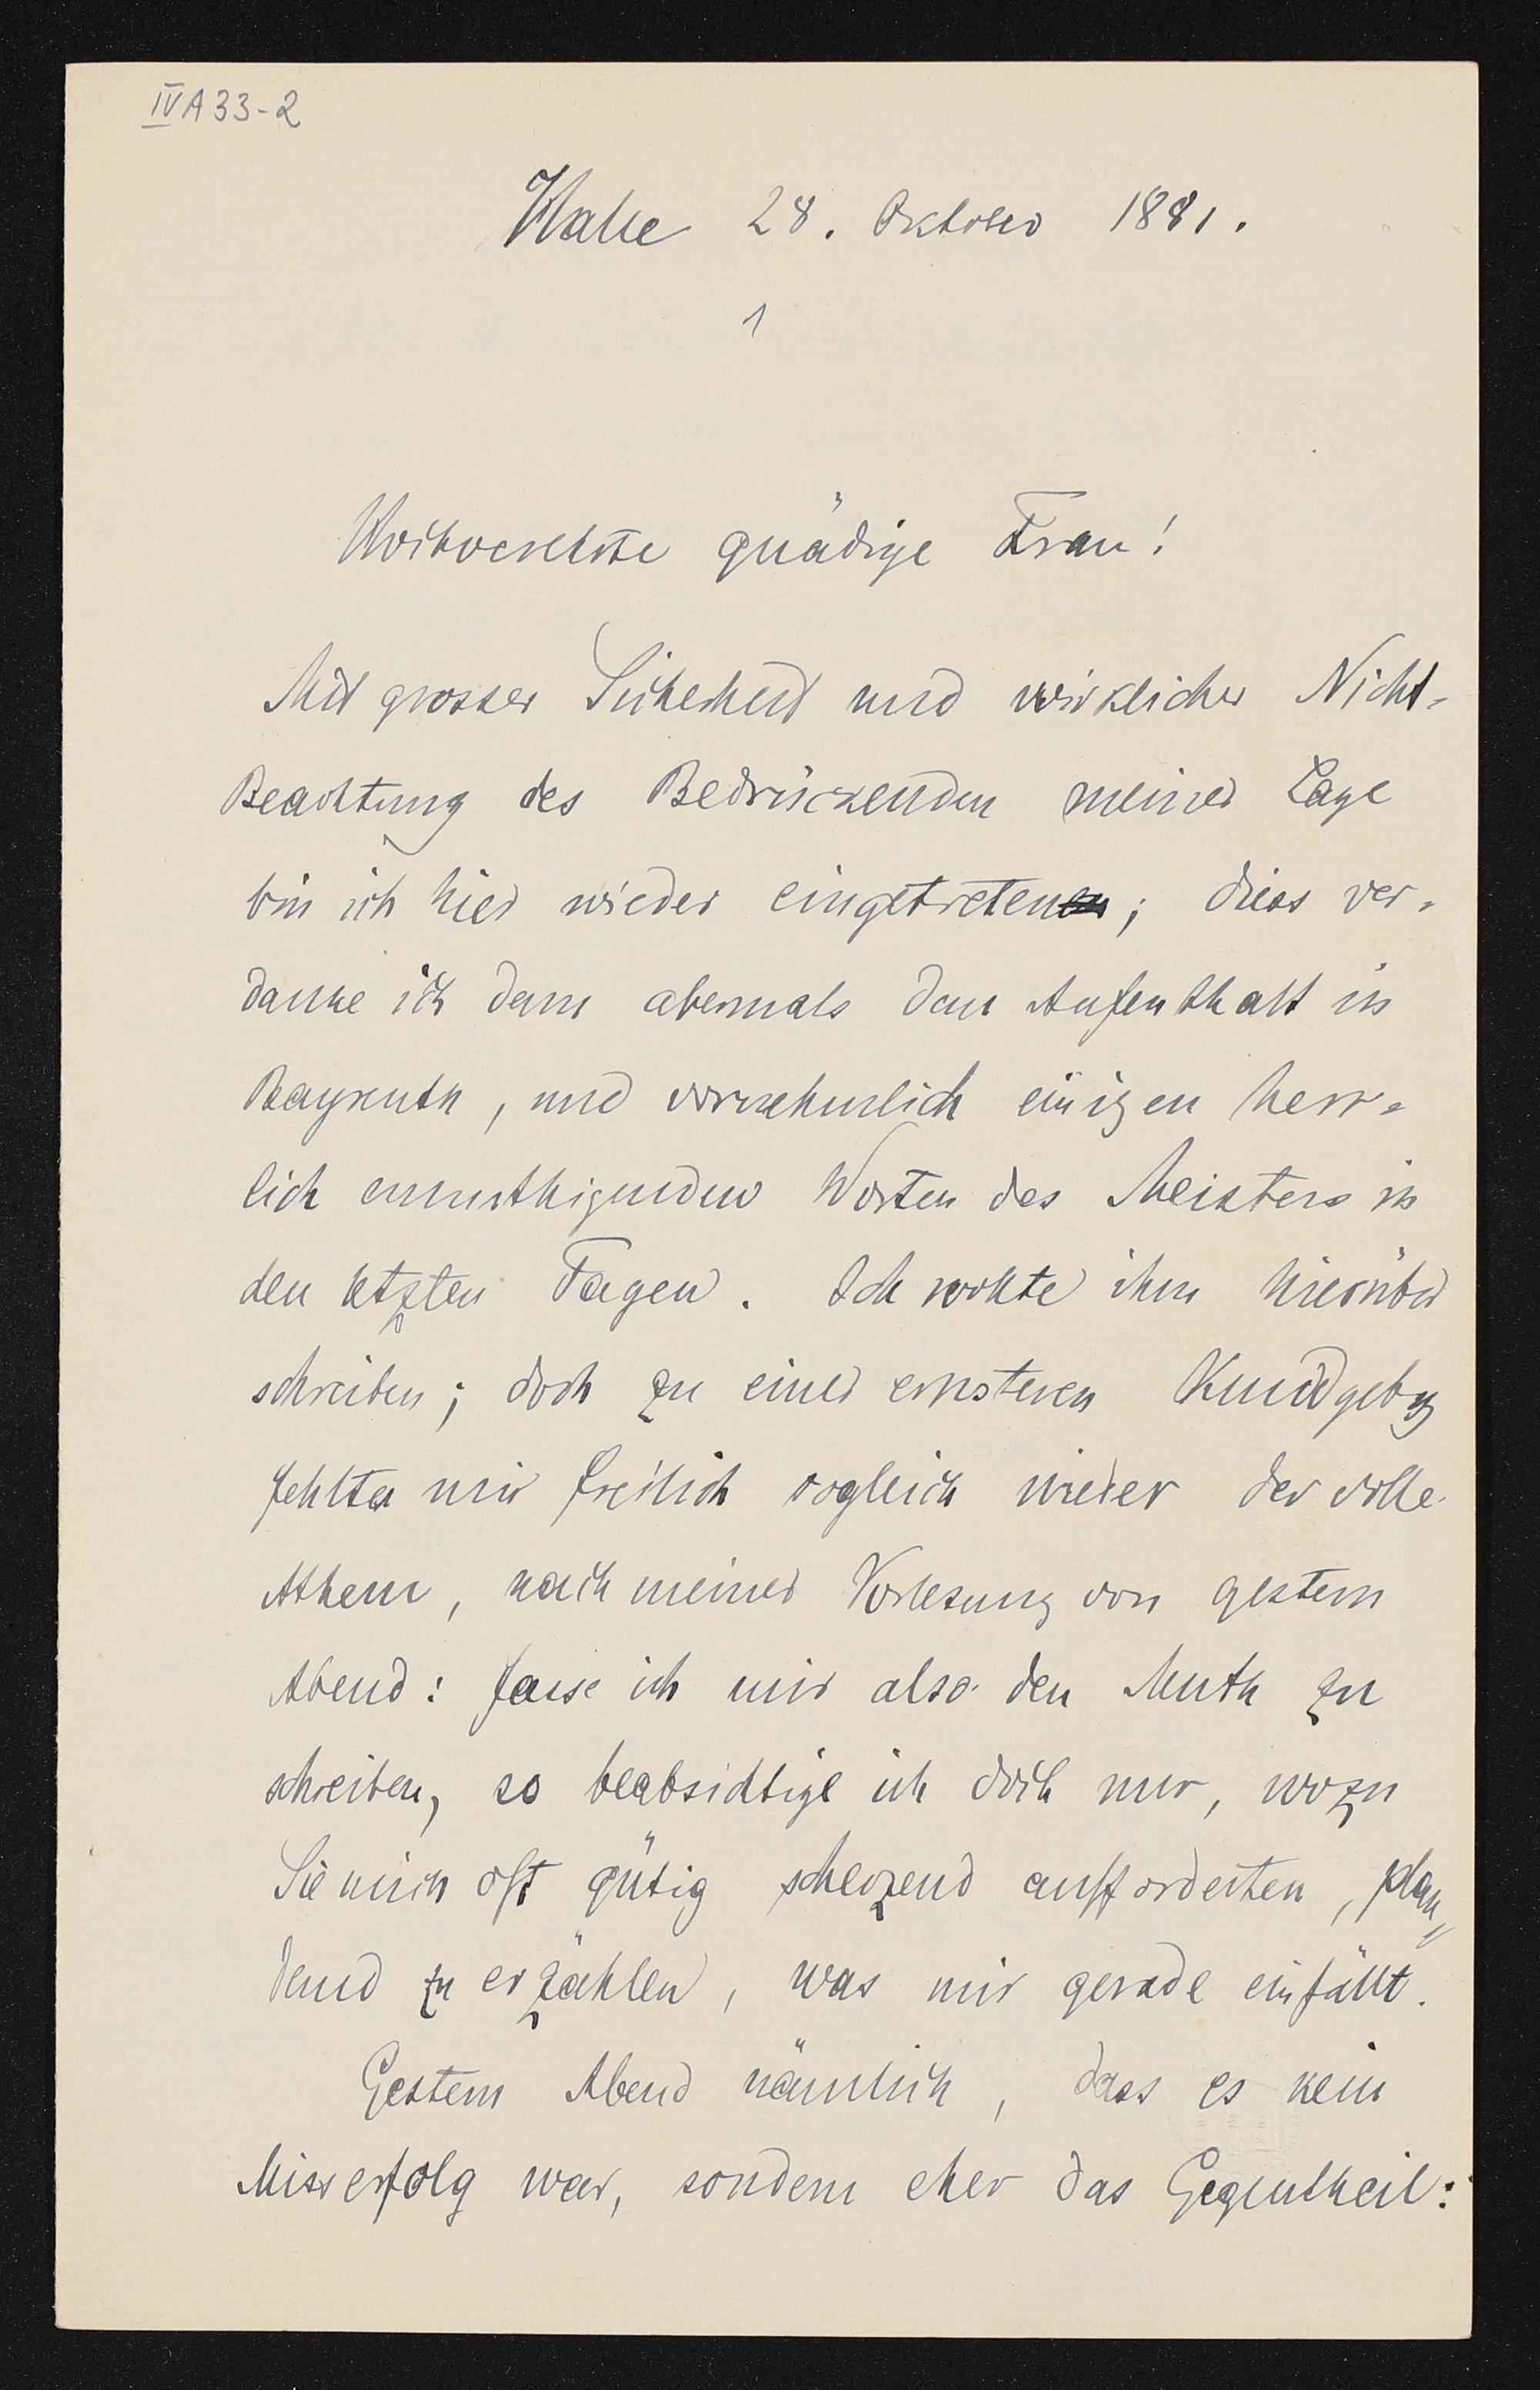 IVA33-2
Halle 28. Oktober 1881.
1
Hochverehrte gnädige Frau!
Mit grosser Sicherheit und wirklicher Nicht-
Beachtung des Bedrückenden meiner Lage
bin ich hier wieder eingetreten; diess ver-
danke ich denn abermals dem Aufenthalt in
Bayreuth, und vornehmlich einigen herr-
lich ermuthigenden Worten des Meisters in
den letzten Tagen. Ich wollte ihm hierüber
schreiben; doch zu einer ernsteren Kundgebg
fehlte mir freilich sogleich wieder der volle
Athem, nach meiner Vorlesung von gestern
Abend: fasse ich mir also den Muth zu
schreiben, so beabsichtige ich doch nur, wozu
Sie mich oft gütig scherzend aufforderten, plau-
dernd zu erzählen, was mir gerade einfällt.
Gestern Abend nämlich, dass es kein
Misserfolg war, sondern eher das Gegentheil: